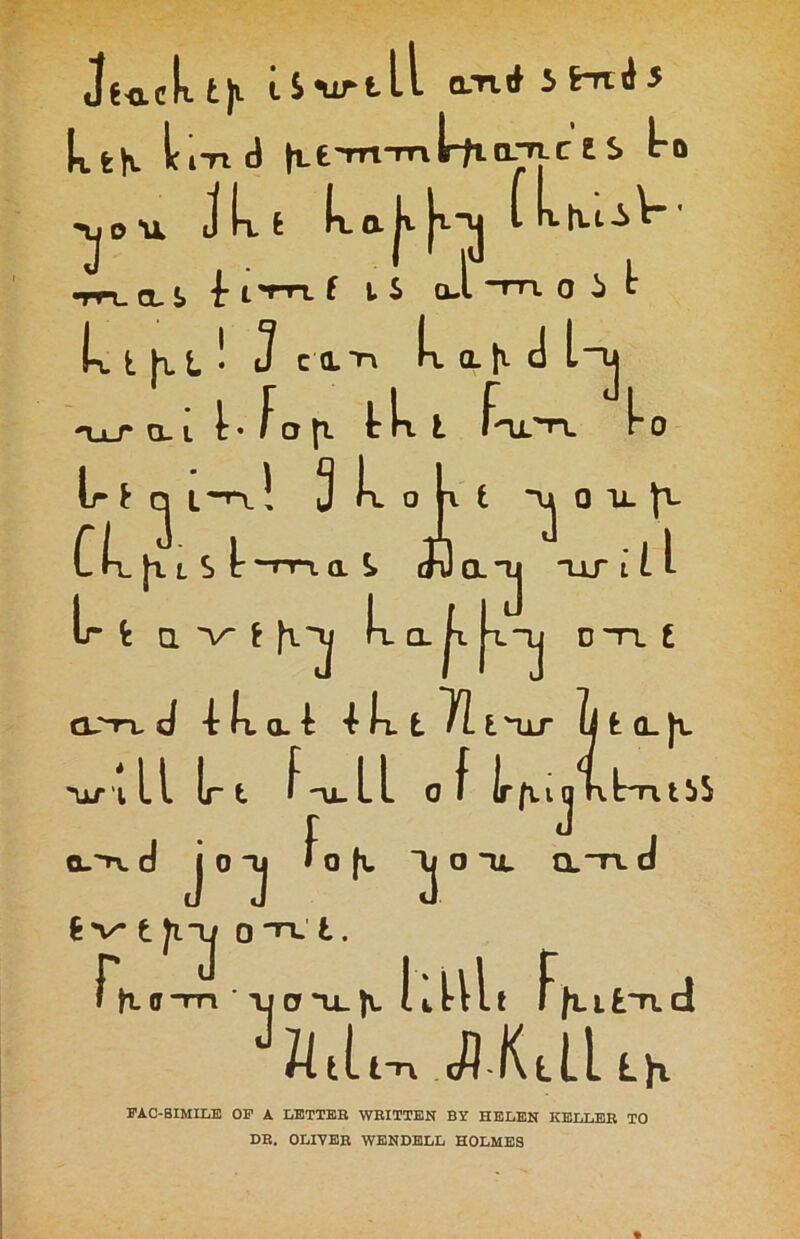 Teacher is well and sends
her kind remembrances to
you. The happy Christ-
mas time is almost
here! I can hardly
wait for the fun to
begin! I hope your
Christmas Day will
be a very happy one
and that the New Year
will be full of brightness
and joy for you and
every one.
From your little friend
Helen A. Keller
FAC-SIMILE OF A LETTER WRITTEN BY HELEN KELLER TO
DR. OLIVER WENDELL HOLMES